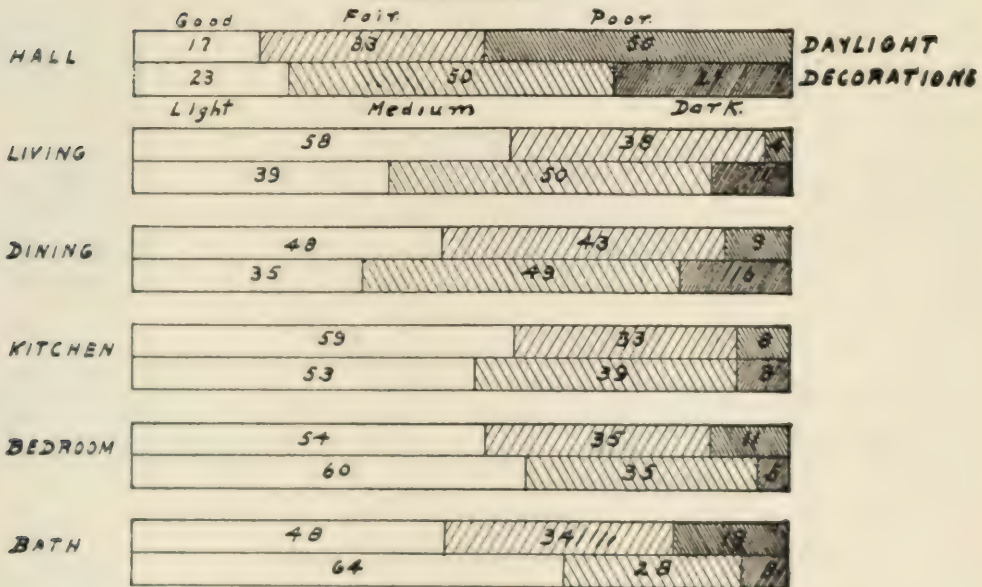 Good Fair. Poor.
HALL 17 33 50 DAYLIGHT
23 50 27 DECORATIONS
Light Medium Dark.
LIVING 58 38 4
39 50 11
DINING 48 43 9
35 49 16
KITCHEN 59 33 8
53 39 8
BEDROOM 54 35 11
60 35 5
BATH 48 34 18
64 28 8